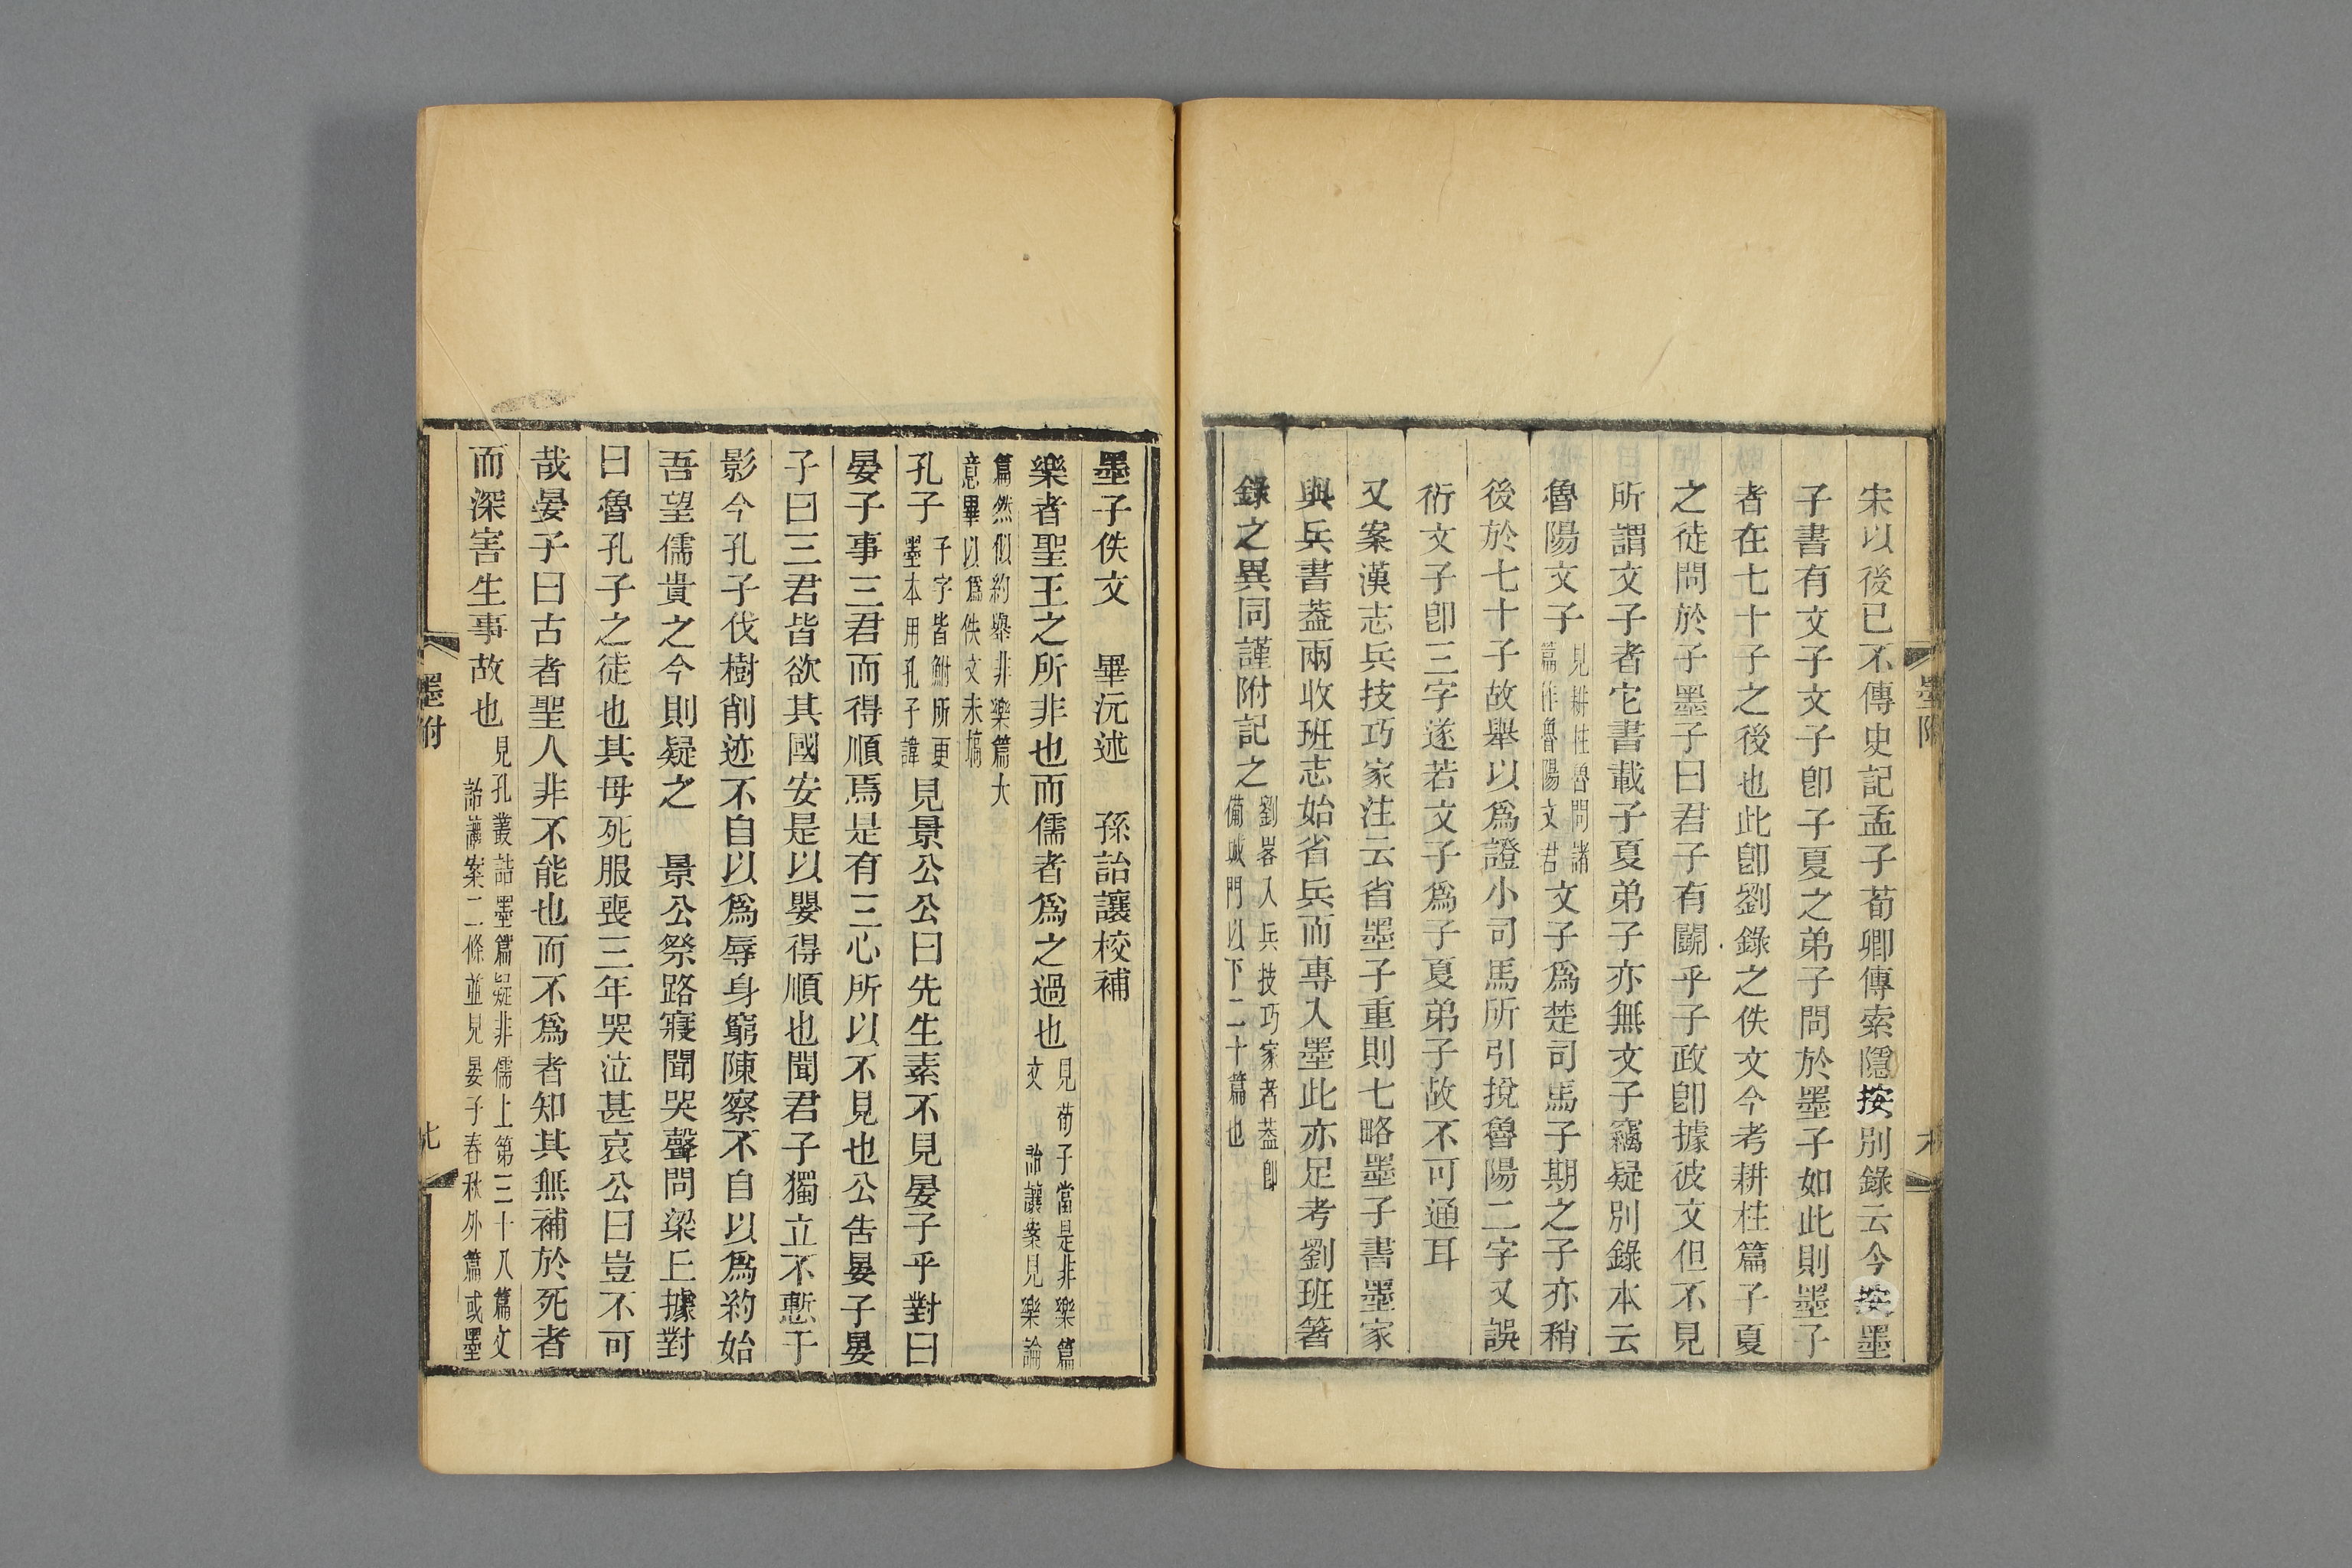 宋以後已不傳史記孟子荀卿傳索隱按別錄云今按墨
子書有文子文子卽子夏之弟子問於墨子如此則墨子
者在七十子之後也此卽劉錄之佚文今考耕柱篇子夏
之徒問於子墨子曰君子有鬭乎子政卽據彼文但不見
所謂文子者它書載子夏弟子亦無文子竊疑別錄本云
魯陽文子見耕柱魯問諸篇作魯陽文君文子爲楚司馬子期之子亦稍
後於七十子故舉以爲證小司馬所引挩魯陽二字又誤
衍文子卽三字遂若文子爲子夏弟子故不可通耳
又案漢志兵技巧家注云省墨子重則七略墨子書墨家
與兵書葢兩收班志始省兵而專入墨此亦足考劉班箸
錄之異同謹附記之劉畧入兵技巧家者葢卽備城門以下二十篇也
墨子佚文　畢沅述　孫詒讓校補
樂者聖王之所非也而儒者爲之過也見荀子當是非樂篇文　詒讓案見樂論
篇然似約舉非樂篇大意畢以爲佚文未塙
孔子子字皆鮒所更墨本用孔子諱見景公公曰先生素不見晏子乎對曰
晏子事三君而得順焉是有三心所以不見也公告晏子晏
子曰三君皆欲其國安是以嬰得順也聞君子獨立不慙于
影今孔子伐樹削迹不自以爲辱身窮陳蔡不自以爲約始
吾望儒貴之今則疑之　景公祭路寢聞哭聲問梁上據對
曰魯孔子之徒也其母死服喪三年哭泣甚哀公曰豈不可
哉晏子曰古者聖人非不能也而不爲者知其無補於死者
而深害生事故也見孔叢詰墨篇疑非儒上第三十八篇文　詒讓案二條並見晏子春秋外篇或墨
墨附